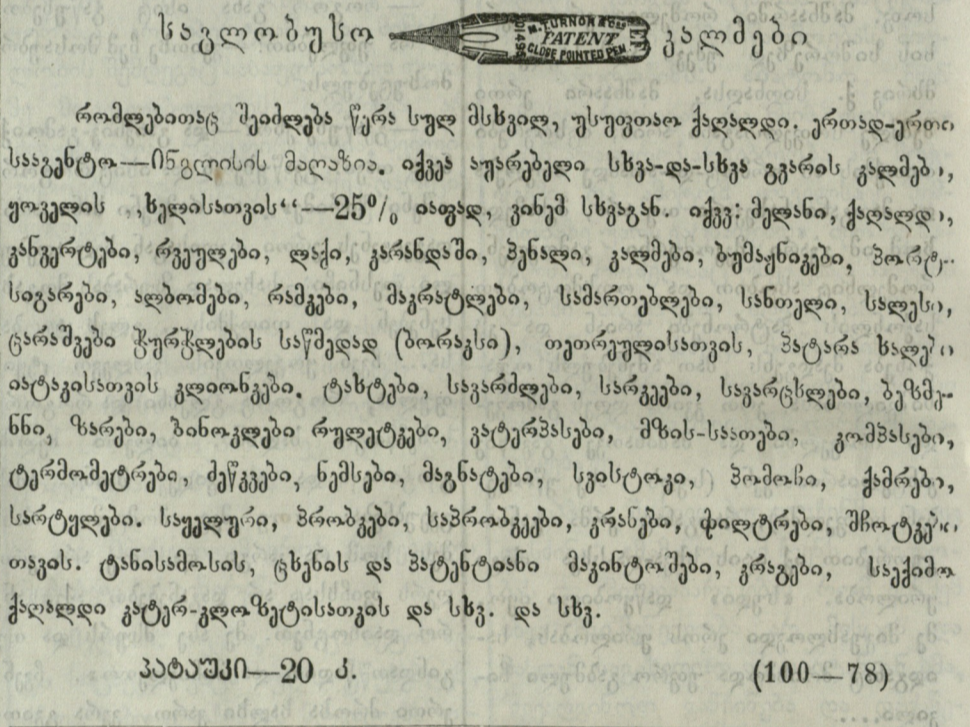 საგლობუსო TURNOR & Co's PATENT GLOBE POINTED PEN კალმები
რომლებითაც შეიძლება წერა სულ მსხვილ, უსუფთაო ქაღალდი. ერთად-ერთი
სააგენტო—ინგლისის მაღაზია. იქვეა აუარებელი სხვა-და-სხვა გვარის კალმები,
ყოველის „ხელისათვის“—25% იაფად, ვინემ სხვაგან. იქვე: მელანი, ქაღალდი,
კანვერტები, რვეულები, ლაქი, კარანდაში, პენალი, კალმები, ბუმაჟნიკები, პორტ-
სიგარები, ალბომები, რამკები, მაკრატლები, სამართებლები, სანთელი, სალესი,
ცარაშვები ჭურჭლების საწმედად (ბორაკსი), თეთრეულისათვის, პატარა ხალები
იატაკისათვის კლიონკები. ტახტები, სავარძლები, სარკეები, სავარცხლები, ბეზმე-
ნნი, ზარები, ბინოკლები რულეტკები, ვატერპასები, მზის-საათები, კომპასები,
ტერმომეტრები, ძეწკვები, ნემსები, მაგნატები, სვისტოკი, პომოჩი, ქამრები,
სარტყლები. საყელური, პრობკები, საპრობკეები, კრანები, ფილტრები, შჩოტკები
თავის. ტანისამოსის, ცხენის და პატენტიანი მაკინტოშები, კრაგები, საექიმო
ქაღალდი კატერ-კლოზეტისათვის და სხვ. და სხვ.
პატაუკი—20 კ. (100—78)